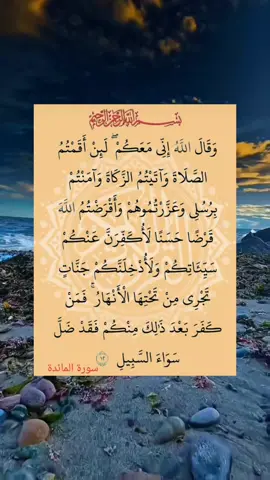 بسم الله الرحمن الرحيم
وَقَالَ اللَّهُ إِنِّى مَعَكُمْ ۖ لَئِنْ أَقَمْتُمُ
الصَّلَاةَ وَآتَيْتُمُ الزَّكَاةَ وَآمَنْتُمْ
بِرُسُلِى وَعَزَّرْتُمُوهُمْ وَأَقْرَضْتُمُ اللَّهَ
قَرْضًا حَسَنًا لَأُكَفِّرَنَّ عَنْكُمْ
سَيِّئَاتِكُمْ وَلَأُدْخِلَنَّكُمْ جَنَّاتٍ
تَجْرِى مِنْ تَحْتِهَا الْأَنْهَارُ ۚ فَمَنْ
كَفَرَ بَعْدَ ذَلِكَ مِنْكُمْ فَقَدْ ضَلَّ
سَوَاءَ السَّبِيلِ ١٢ سورة المائدة